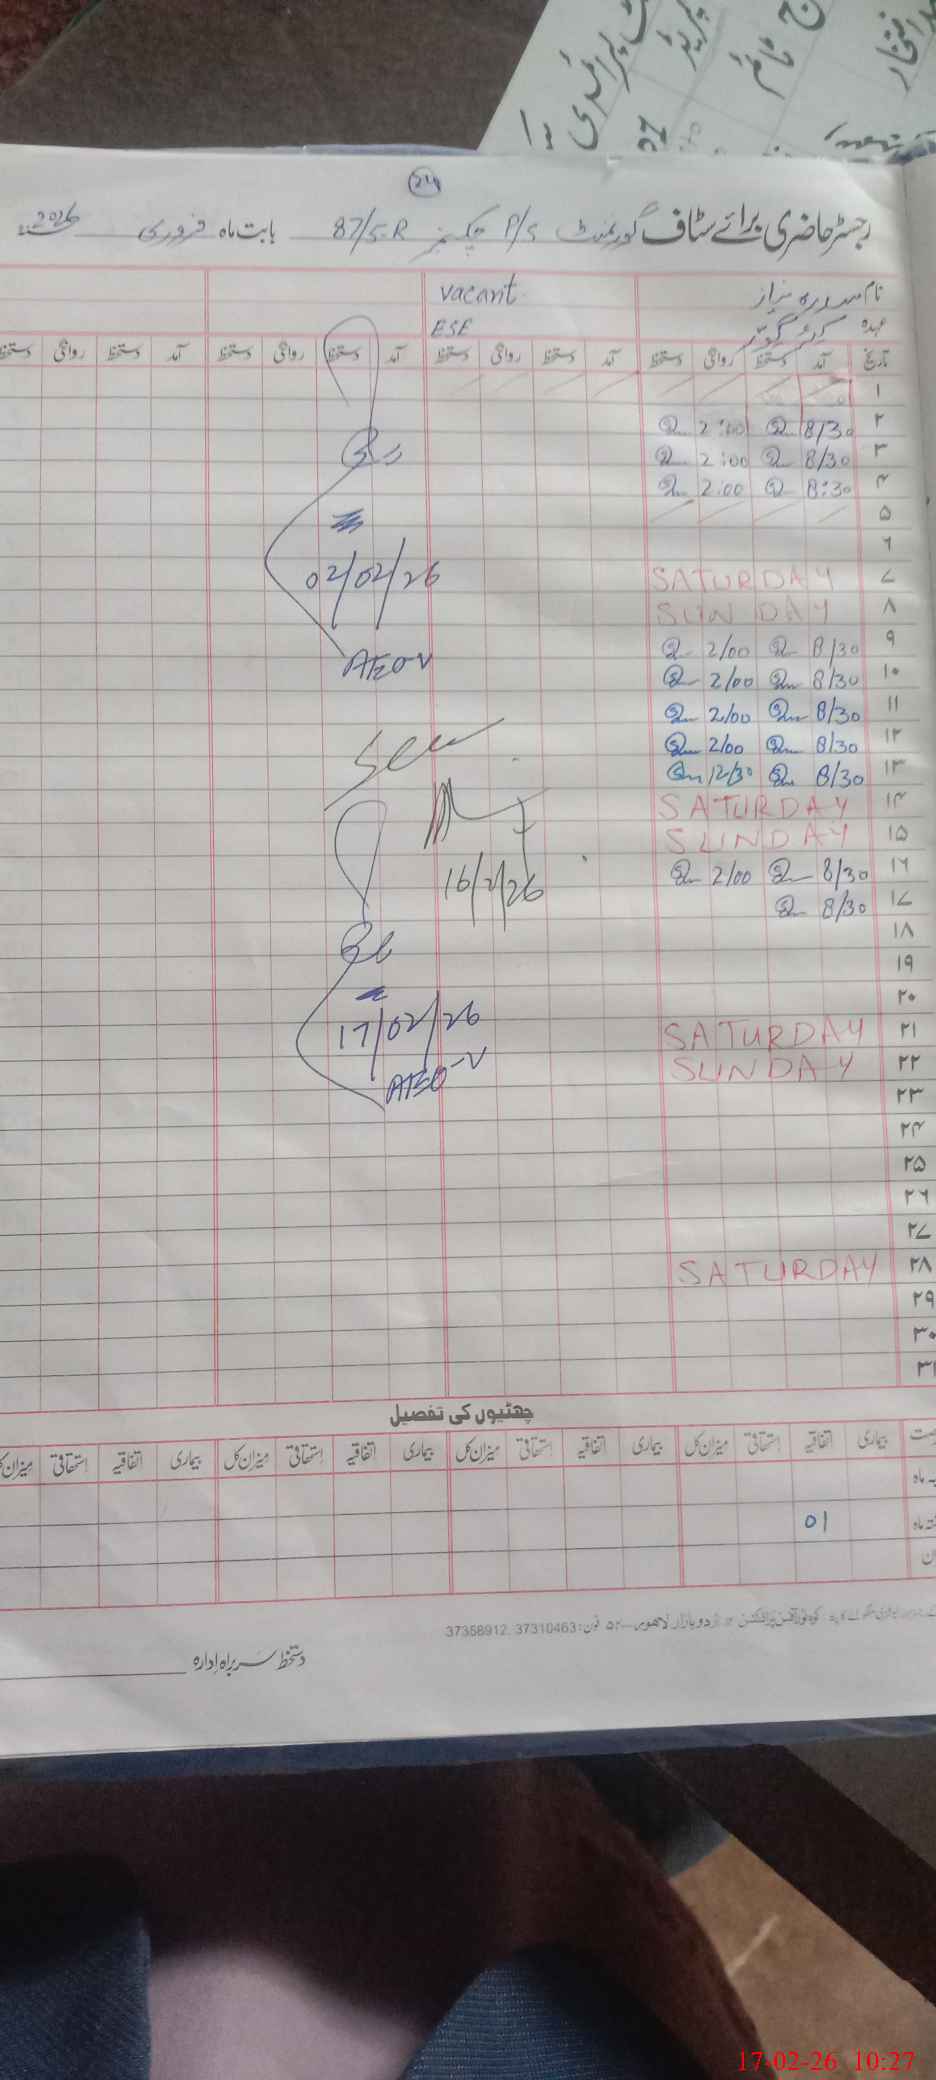 پرائمری
ٹائم
افتخار
214
رجسٹر حاضری برائے سٹاف گورنمنٹ P/S چکنمبر 87/5-R بابت ماہ فروری 2026
نام سدرہ نیاز vacant
عہدہ ESE
تاریخ آمد دستخط روانگی دستخط آمد دستخط روانگی دستخط آمد دستخط روانگی دستخط آمد دستخط روانگی دستخط
۱
۲ 8/30 2:00
۳ 8/30 2:00
۴ 8:30 2:00
۵
۶
02/02/26
۷ SATURDAY
۸ SUNDAY
۹ 8/30 2/00
AEO-V
۱۰ 8/30 2/00
۱۱ 8/30 2/00
۱۲ 8/30 2/00
۱۳ 8/30 12/30
۱۴ SATURDAY
۱۵ SUNDAY
۱۶ 8/30 2/00
16/2/26
۱۷ 8/30
۱۸
۱۹
۲۰
17/02/26
۲۱ SATURDAY
۲۲ SUNDAY
AEO-V
۲۳
۲۴
۲۵
۲۶
۲۷
۲۸ SATURDAY
۲۹
۳۰
۳۱
چھٹیوں کی تفصیل
بیماری اتفاقیہ استحقاقی میزان کل بیماری اتفاقیہ استحقاقی میزان کل بیماری اتفاقیہ استحقاقی میزان کل بیماری اتفاقیہ استحقاقی میزان کل
ماہ
ماہ 01
اردو بازار لاہور فون: 37310463, 37358912
دستخط سربراہ ادارہ
17-02-26 10:27